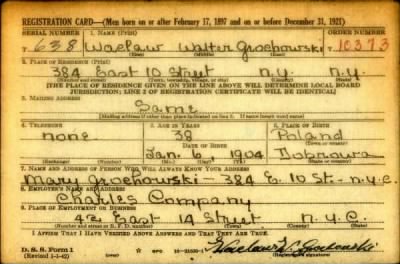 REGISTRATION CARD—(Men born on or after February 17, 1897 and on or before December 31, 1921)
SERIAL NUMBER 1. NAME (Print) ORDER NUMBER
T 638 Waclaw Walter Grochowski T 10373
(First) (Middle) (Last)
2. PLACE OF RESIDENCE (Print)
384 East 10 Street N.Y. N.Y.
(Number and street) (Town, township, village, or city) (County) (State)
[THE PLACE OF RESIDENCE GIVEN ON THE LINE ABOVE WILL DETERMINE LOCAL BOARD
JURISDICTION; LINE 2 OF REGISTRATION CERTIFICATE WILL BE IDENTICAL]
3. MAILING ADDRESS
Same
[Mailing address if other than place indicated on line 2. If same insert word same]
4. TELEPHONE 5. AGE IN YEARS 6. PLACE OF BIRTH
none 38 Poland
DATE OF BIRTH (Town or county)
Jan. 6, 1904 Dobrowa
(Exchange) (Number) (Mo.) (Day) (Yr.) (State or country)
7. NAME AND ADDRESS OF PERSON WHO WILL ALWAYS KNOW YOUR ADDRESS
Mary Grochowski - 384 E. 10 St. - N.Y.C.
8. EMPLOYER'S NAME AND ADDRESS
Charles Company
9. PLACE OF EMPLOYMENT OR BUSINESS
42 East 14 Street N.Y.C.
(Number and street or R. F. D. number) (Town) (County) (State)
I AFFIRM THAT I HAVE VERIFIED ABOVE ANSWERS AND THAT THEY ARE TRUE.
D. S. S. Form 1
(Revised 1-1-42) (over) Waclaw W. Grochowski
(Registrant's signature)